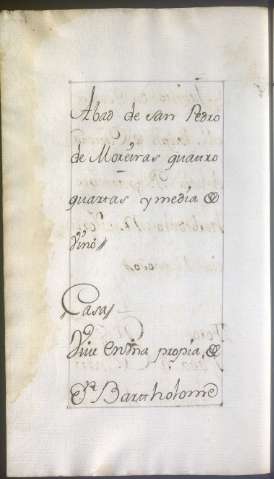 Abad de san Pedro
de Moreiras quatro
quartas y media de
Vino//
Casas
Vive en una propia, de
Dn. Barttholome